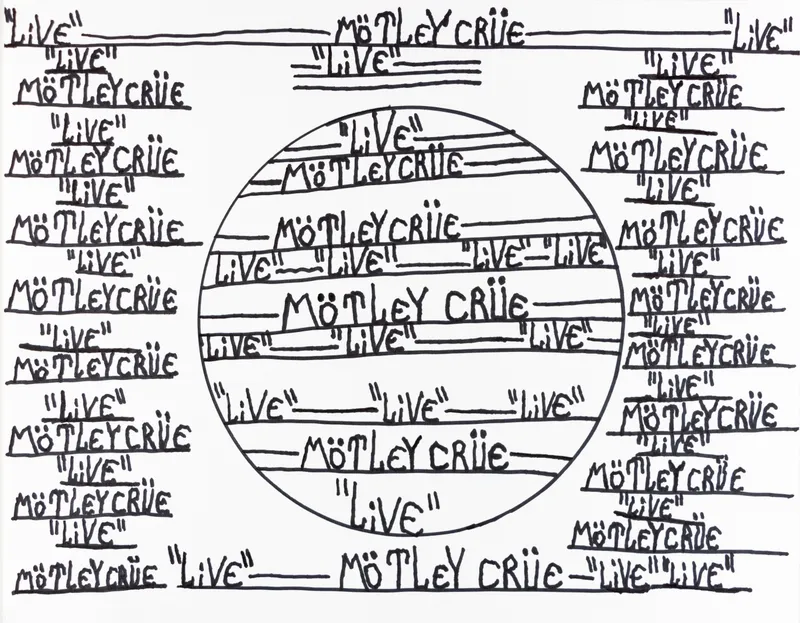 "LiVE" MöTLEY CRÜE "LiVE"
"LiVE"
"LiVE"
MöTLEY CRÜE
"LiVE"
MöTLEY CRÜE
"LiVE"
MöTLEY CRÜE
"LiVE"
MöTLEY CRÜE
"LiVE"
MöTLEY CRÜE
"LiVE"
MöTLEY CRÜE
"LiVE"
MöTLEY CRÜE
"LiVE"
"LiVE"
MöTLEY CRÜE
MöTLEY CRÜE
"LiVE" "LiVE" "LiVE" "LiVE"
MöTLEY CRÜE
"LiVE" "LiVE" "LiVE"
"LiVE" "LiVE" "LiVE"
MöTLEY CRÜE
"LiVE"
"LiVE"
MöTLEY CRÜE
"LiVE"
MöTLEY CRÜE
"LiVE"
MöTLEY CRÜE
"LiVE"
MöTLEY CRÜE
"LiVE"
MöTLEY CRÜE
"LiVE"
MöTLEY CRÜE
"LiVE"
MöTLEY CRÜE
"LiVE"
MöTLEY CRÜE
MöTLEY CRÜE "LiVE" MöTLEY CRÜE "LiVE" "LiVE"